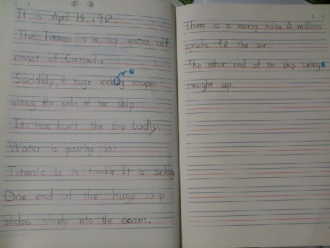 It is April 14, 1912.
The Titanic is in icy water off
coast of Canada.
Suddenly, A huge iceberg scrapes
along the side of the ship.
It has hurt the ship badly.
Water is pouring in!
Titanic is in trouble. It is sinking
One end of the huge ship
slides slowly into the ocean.
There is a roaring noise. A million
sparks fill the air.
The other end of the ship swings
straight up.